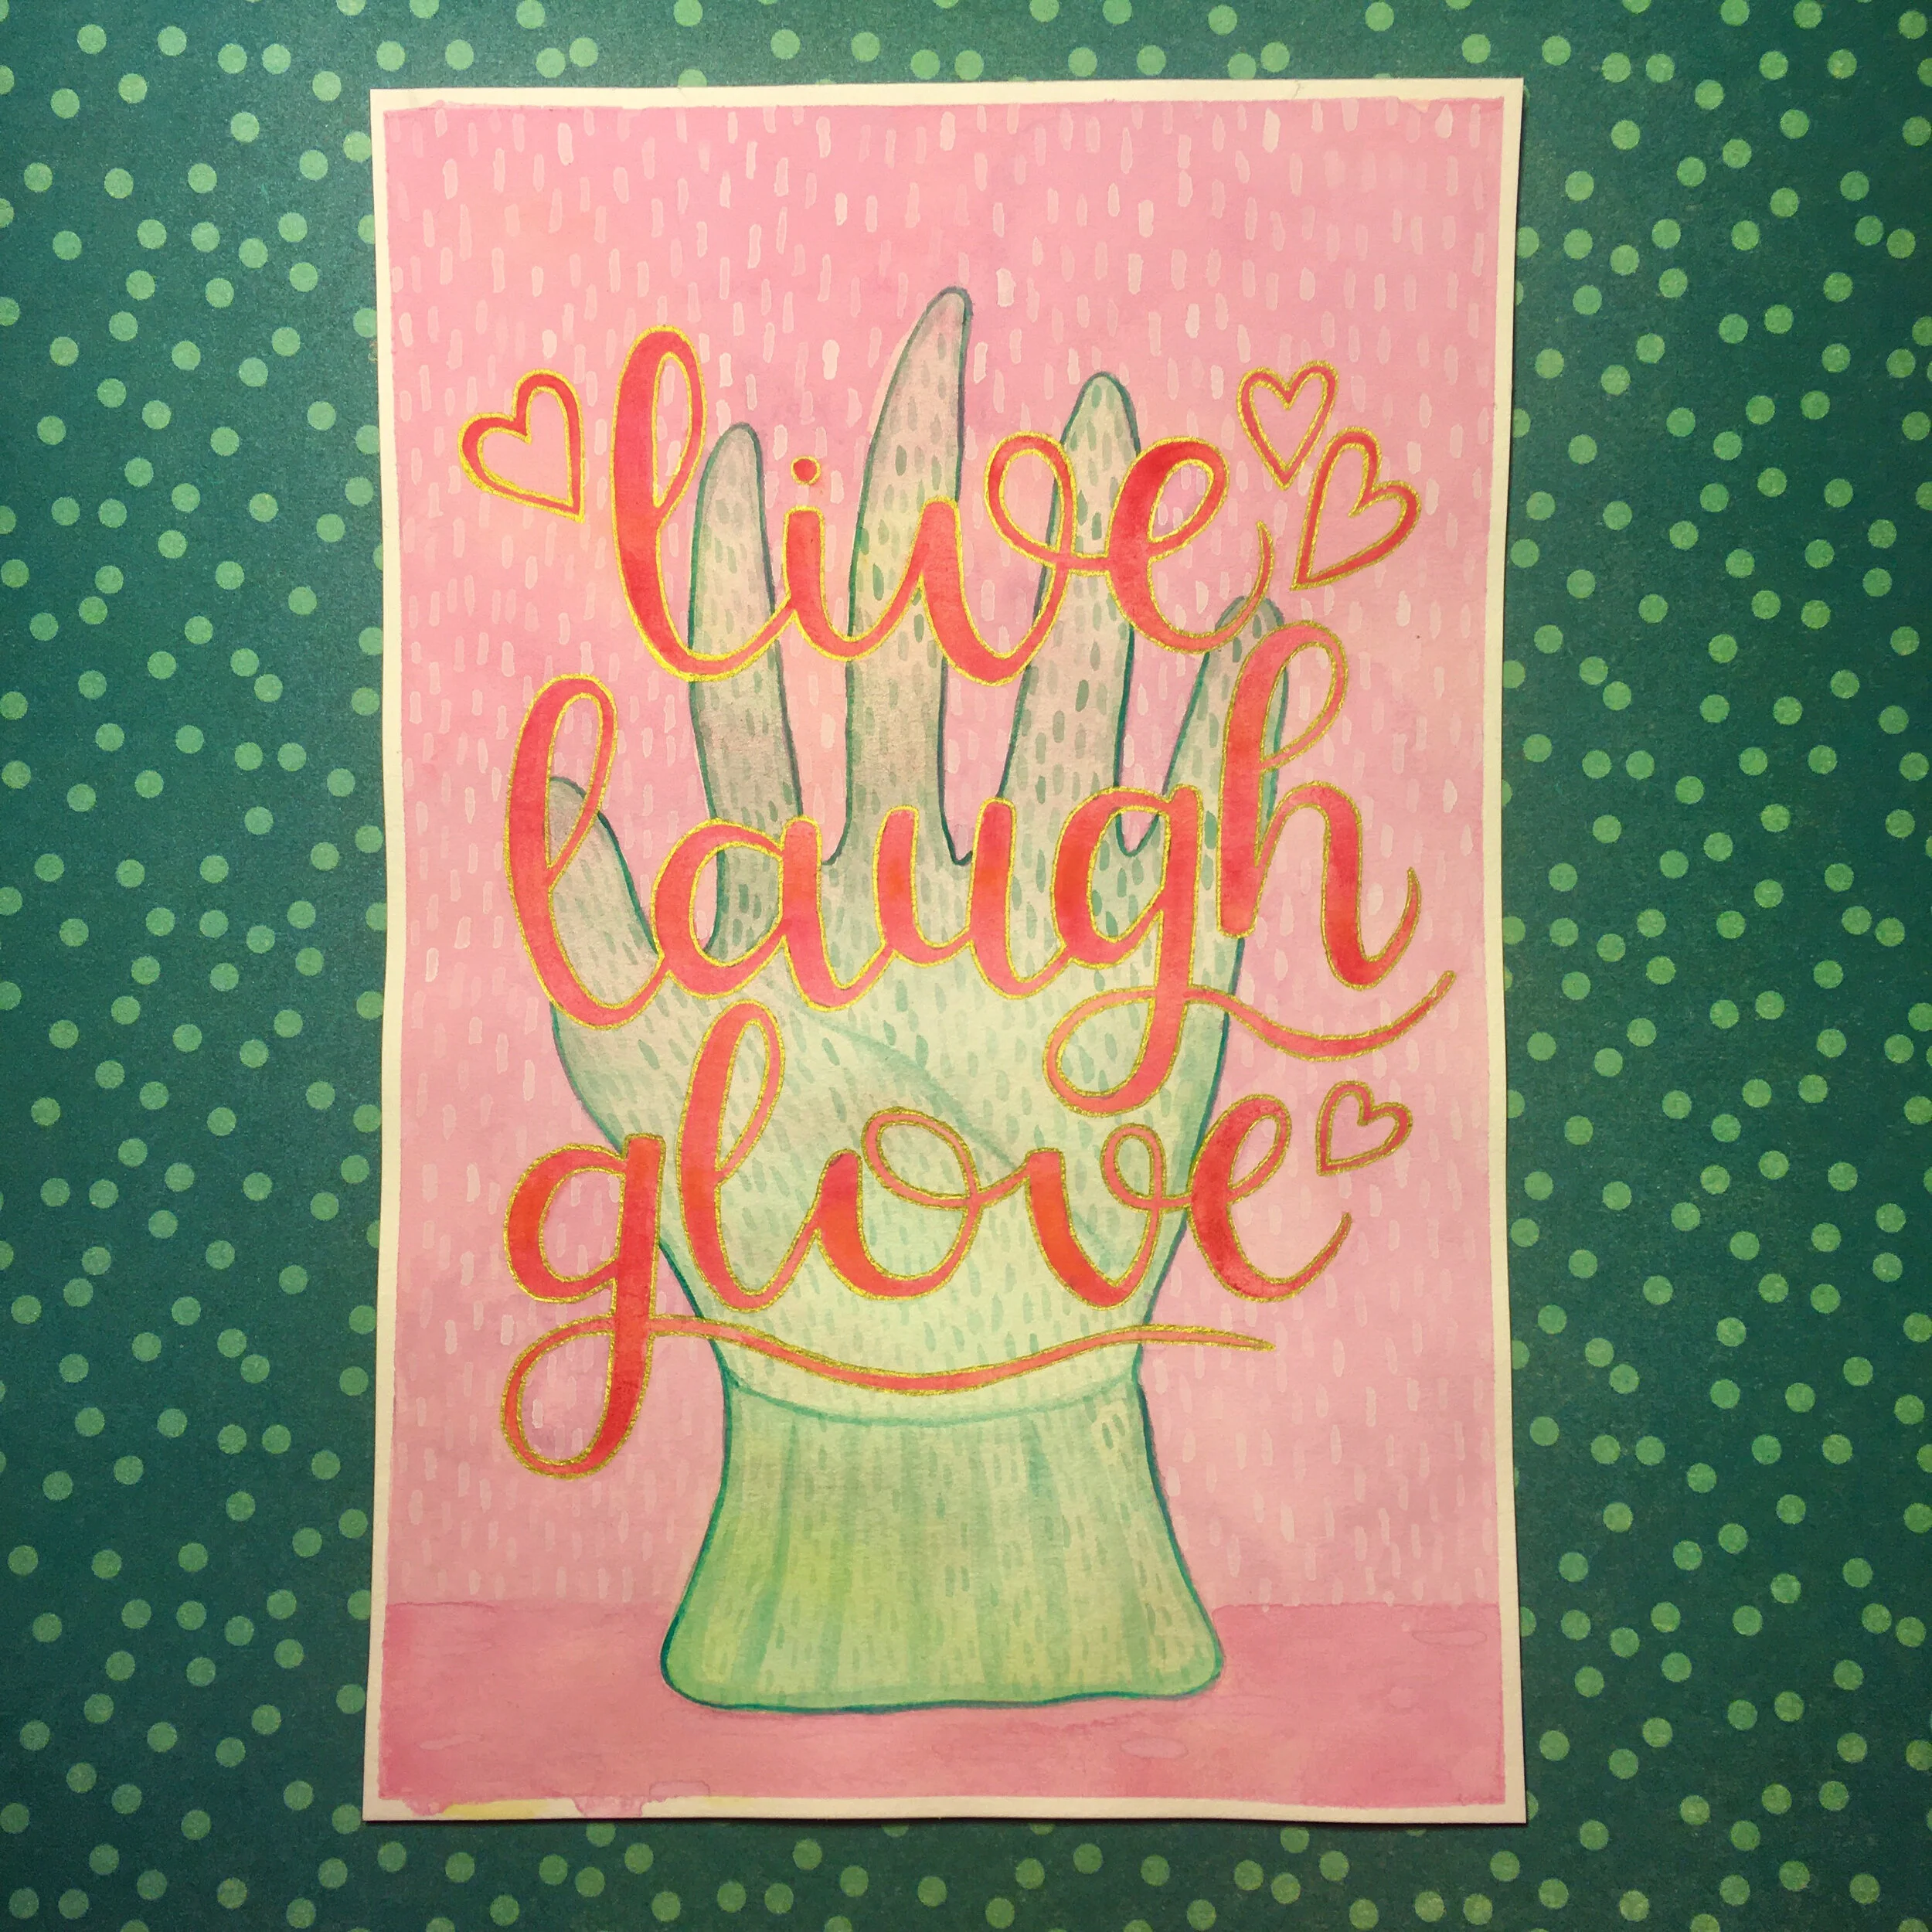 live
laugh
glove